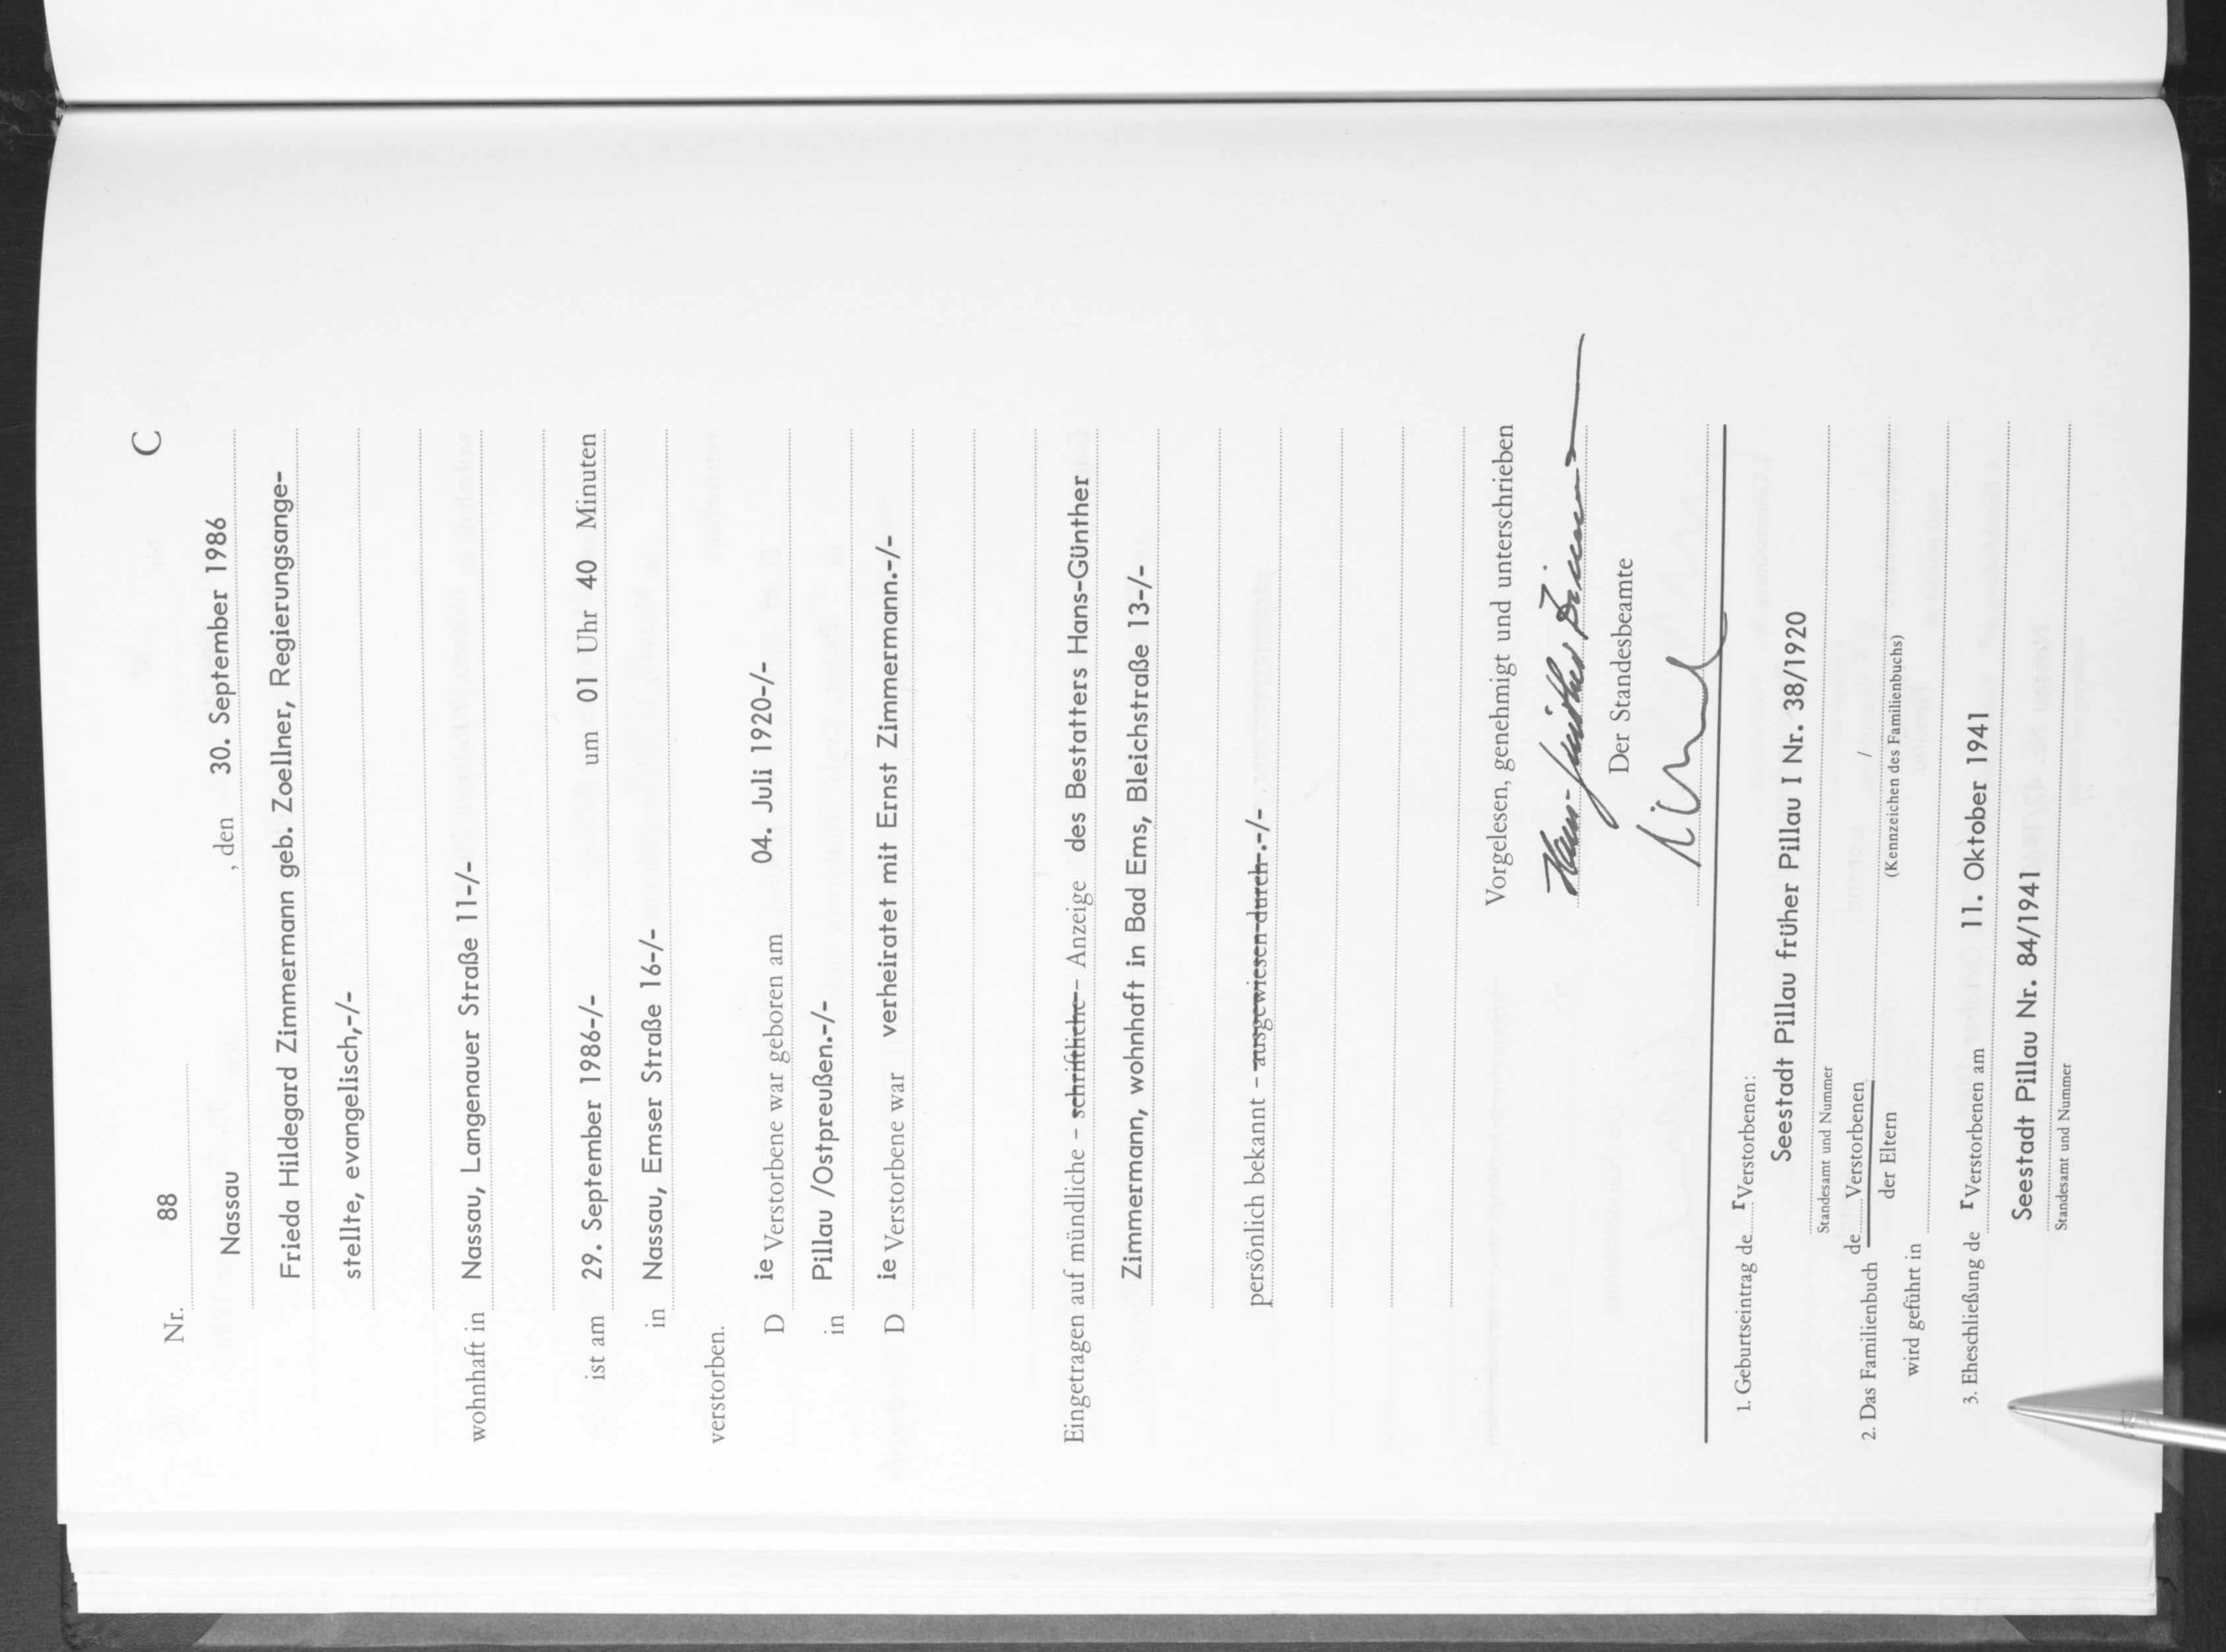 C
Nr. 88
Nassau, den 30. September 1986
Frieda Hildegard Zimmermann geb. Zoellner, Regierungsange-
stellte, evangelisch,-/-
wohnhaft in Nassau, Langenauer Straße 11-/-
ist am 29. September 1986-/- um 01 Uhr 40 Minuten
in Nassau, Emser Straße 16-/-
verstorben.
D ie Verstorbene war geboren am 04. Juli 1920-/-
in Pillau /Ostpreußen.-/-
D ie Verstorbene war verheiratet mit Ernst Zimmermann.-/-
Eingetragen auf mündliche - schriftliche - Anzeige des Bestatters Hans-Günther
Zimmermann, wohnhaft in Bad Ems, Bleichstraße 13-/-
persönlich bekannt - ausgewiesen durch.-/-
Vorgelesen, genehmigt und unterschrieben
Hans-Günther Zimmermann
Der Standesbeamte
1. Geburtseintrag de r Verstorbenen:
Seestadt Pillau früher Pillau I Nr. 38/1920
Standesamt und Nummer
2. Das Familienbuch de Verstorbenen /
der Eltern (Kennzeichen des Familienbuchs)
wird geführt in
3. Eheschließung de r Verstorbenen am 11. Oktober 1941
Seestadt Pillau Nr. 84/1941
Standesamt und Nummer